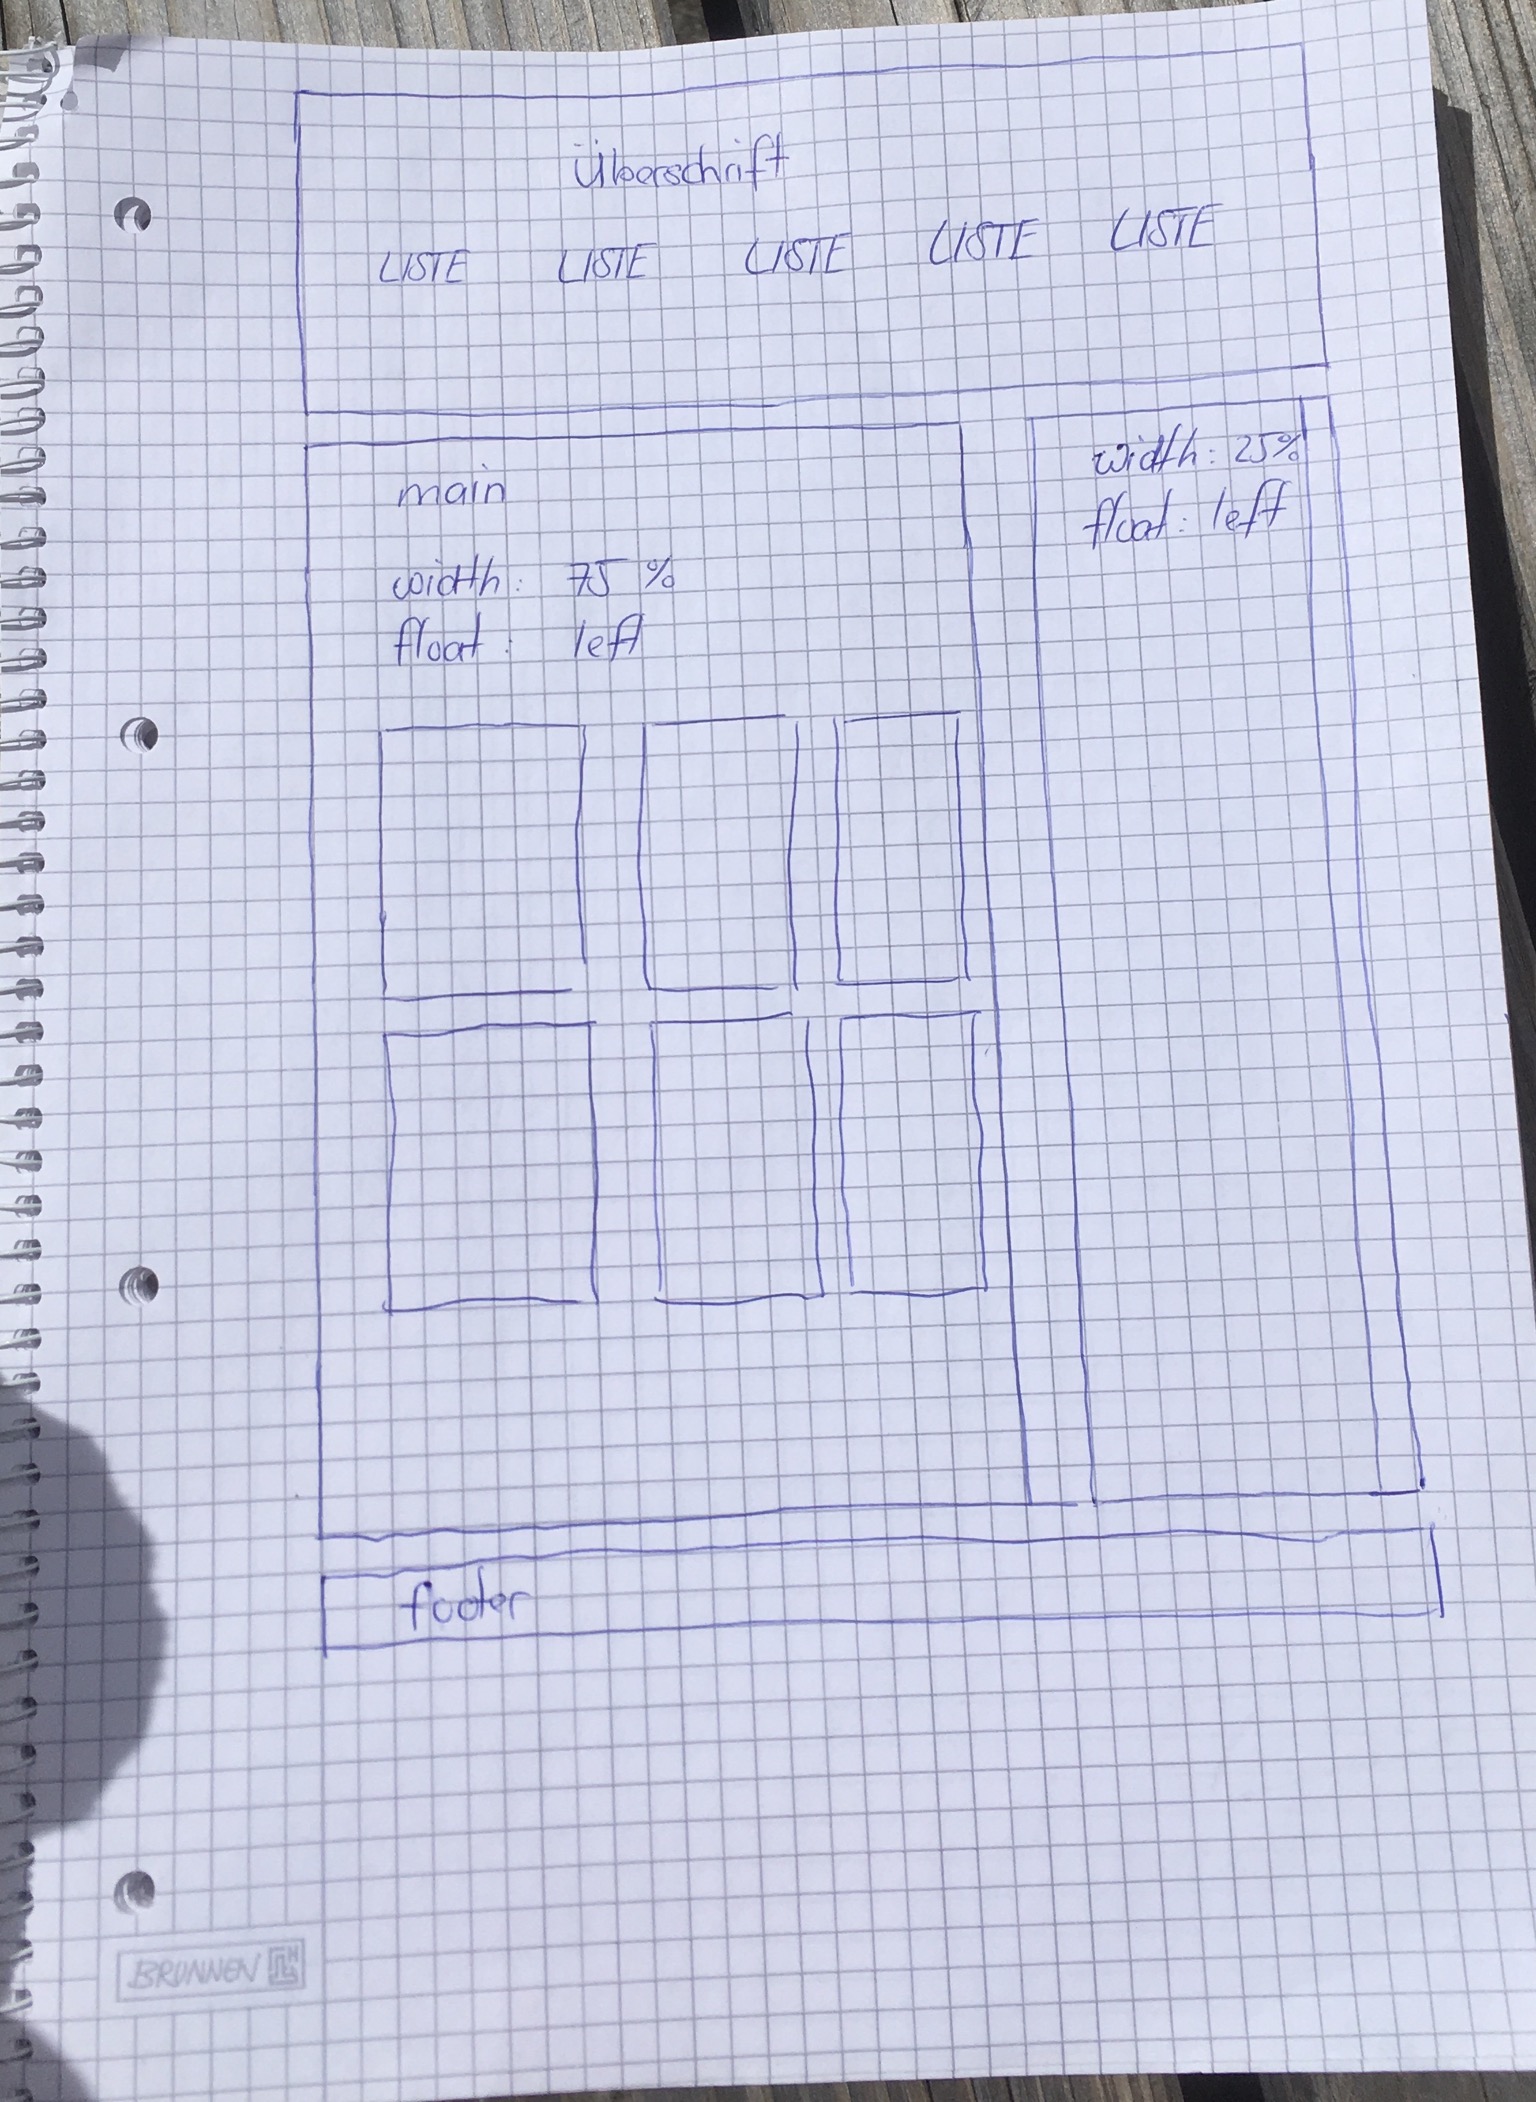 Überschrift
LISTE LISTE LISTE LISTE LISTE
main
width: 75 %
float: left
width: 25%
float: left
footer
BRUNNEN